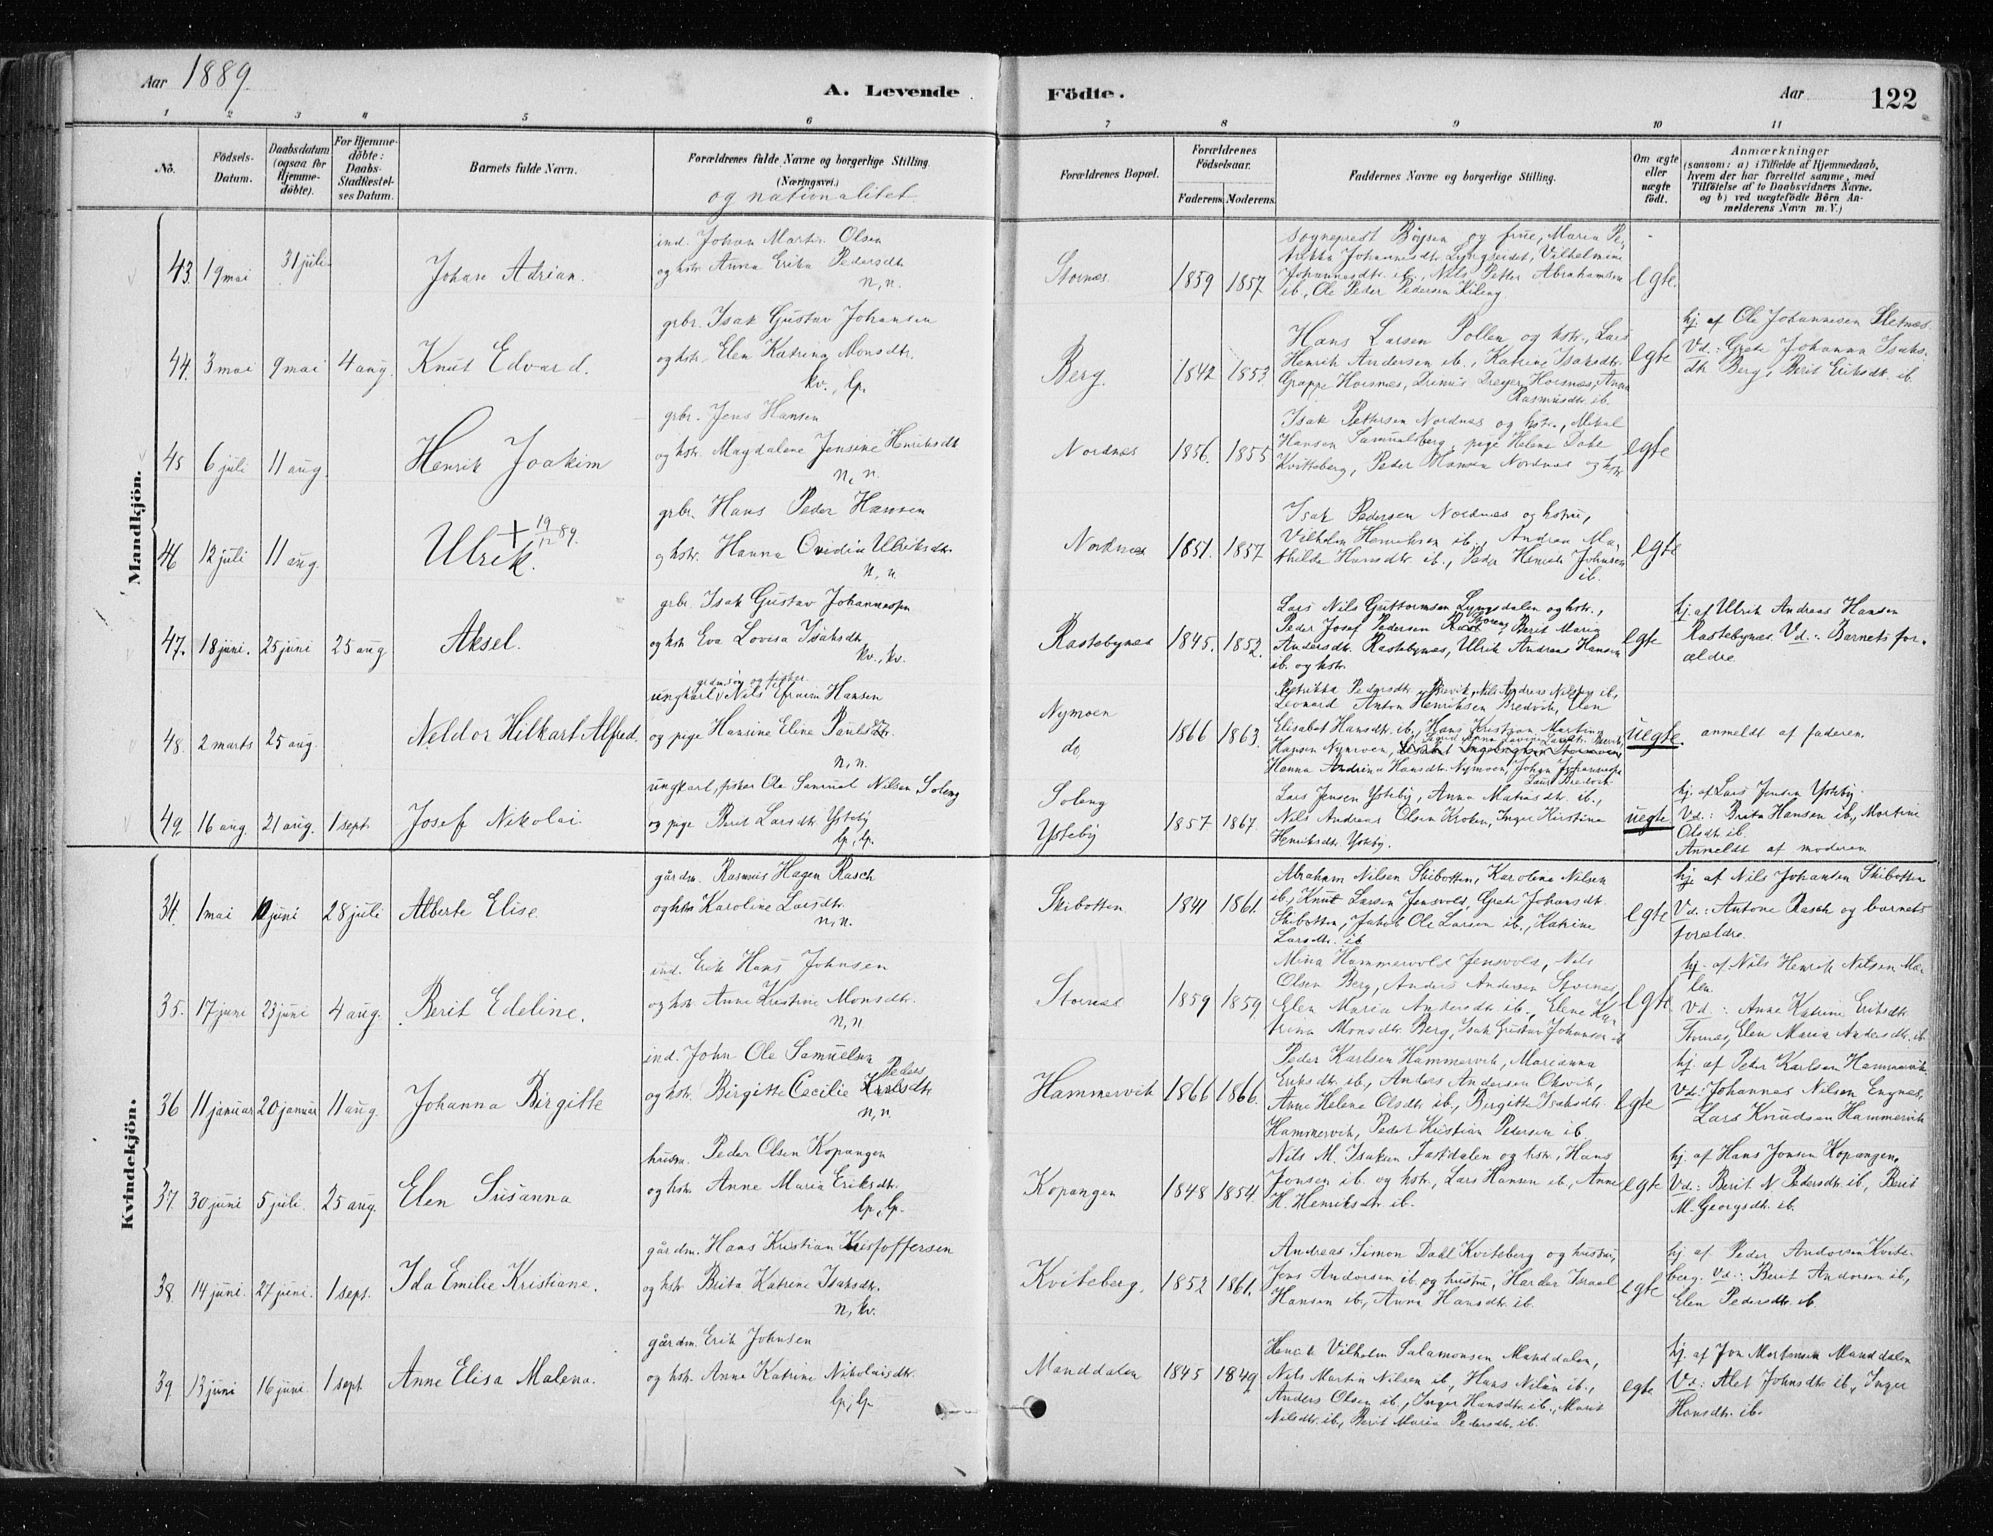 Aar 1889.
A. Levende
Födte.
Aar
122
1 2 3 4 5 6
7 8 9 10 11
No.
Födsels-
Datum.
Daabsdatum
(ogsaa for
Hjemme-
döbte).
For Hjemme-
döbte:
Daabs-
Stadfæstel-
ses Datum.
Barnets fulde Navn.
Forældrenes fulde Navne og borgerlige Stilling
(Næringsvei.)
og nationalitet
Forældrenes Bopæl.
Forældrenes
Födselsaar.
Faderens. Moderens.
Faddernes Navne og borgerlige Stilling.
Om ægte
eller
uægte
født.
Anmærkninger
(saasom: a) i Tilfælde af Hjemmedaab,
hvem der har forrettet samme, med
Tilföielse af to Daabsvidners Navne.
og b) ved uægtefödte Börn An-
melderens Navn m. V.)
Mandkjön.
43. 19 mai 31 juli Johan Adrian.
ind. Johan Martin Olsen
og hstr. Anna Erika Pedersdtr.
n, n.
Stornæs. 1859 1857
Sogneprest Bøysen og frue, Maria Pe-
trikka Johannesdtr. Lyngseidet, Vilhelmine
Johannesdtr. ib., Nils Petter Abrahamsen
ib., Ole Peder Pedersen Kileng
egte.
44. 3 mai 9 mai 4 aug. Knut Edvard.
grbr. Isak Gustav Johansen
og hstr. Elen Katrina Monsdtr.
kv., lp.
Berg. 1842 1853.
Hans Larsen Pollen og hstr., Lars
Henrik Andersen ib., Katrine Isaksdtr.
Grappe Horsnæs, Drinus Dreyer Horsnæs, Anna
Rasmusdtr. ib.
egte
hj. af Ole Johannesen Sletnæs.
Vd.: Grete Johanna Isaks-
dtr. Berg, Berit Eriksdtr. ib.
45 6 juli 11 aug. Henrik Joakim
grbr. Jens Hansen
og hstr. Magdalene Jensine Henriksdtr.
n, n.
Nordnæs 1856. 1855
Isak Pettersen Nordnæs og hstr., Mikal
Hansen Samuelsberg, pige Helene Dahl
Kvitteberg, Peder Hansen Nordnæs og hstr.
egte
46 12 juli 11 aug. Ulrik. + 19/12 89.
grbr. Hans Peder Hansen
og hstr. Hanna Ovidia Ulriksdtr.
n, n.
Nordnæs 1851. 1857
Isak Pedersen Nordnæs og hstru,
Vilhelm Henriksen ib., Andrea Ma-
thilde Hansdtr. ib., Peder Henrik Johnsen
ib.
egte
47. 18 juni. 25 juni 25 aug. Aksel.
grbr. Isak Gustav Johannessen
og hstr. Eva Lovisa Isaksdtr.
kv., kv.
Rastebynæs 1845. 1852.
Lars Nils Guttormsen Lyngsdalen og hstr.,
Peder Josef Pedersen Storeng, Berit Maria
Andersdtr. Rastebynæs, Ulrik Andreas Hansen
ib. og hstr.
egte
hj. af Ulrik Andreas Hansen
Rastebynæs. Vd.: Barnets for-
ældre.
48. 2 marts 25 aug. Neldor Hilkart Alfred.
ungkarl, Nils Efraim Hansen
og pige Hanrine Eline Paulsdtr.
n, n.
Nymoen
do 1866 1863.
Leonard Anton Henriksen Bredvik, Elen
Elisabet Hansdtr. ib., Hans Kristian Martin
Hansen Nymoen,
Hanna Andrina Hansdtr. Nymoen,
uegte. anmeldt af faderen.
49. 16 aug. 21 aug. 1 sept. Josef Nikolai.
ungkarl, fisker Ole Samuel Nilsen Soleng
og pige Berit Larsdtr. Ysteby
lp., lp.
Soleng
Ysteby 1857 1867.
Lars Jensen Ysteby, Anna Matiasdtr. ib.,
Nils Andreas Olsen Kroken, Inger Kirstina
Henriksdtr. Ysteby.
uegte
hj. af Lars Jensen Ysteby.
Vd.: Brita Hansen ib., Martine
Olsdtr. ib.
Anmeldt af moderen
Kvindekjön.
34. 1 mai juni 28 juli Alberte Elise.
gårdm. Rasmus Hagen Rasch
og hstr. Karoline Larsdtr.
n, n.
Skibotten 1841 1861.
Abraham Nilsen Skibotten, Karoline Nilsen
ib., Knut Larsen Jensvold, Grete Johansdtr.
Skibotten, Jakob Ole Larsen ib., Katrine
Larsdtr. ib
egte
hj. af Nils Johansen Skibotten
Vd.: Antone Rasch og barnets
forældre.
35. 17 juni 23 juni 4 aug. Berit Edeline.
ind. Erik Hans Johnsen
og hstr. Anne Kirstine Monsdtr.
n, n
Stornæs 1859 1859
Mina Hammervold Jensvold, Nils
Olsen Berg, Anders Andersen Stornæs,
Elen Maria Andersdtr. ib., Elene Ka-
trina Monsdtr. Berg, Isak Gustav Johansen ib
egte.
hj. af Nils Henrik Nilsen Mæ-
len.
Vd.: Anne Katrine Eriksdtr.
Stornæs, Elen Maria Andersdtr. ib
36 11 januar 20 januar 11 aug. Johanna Birgitte
ind. John Ole Samuelsen
og hstr. Birgitte Cecilie Pedersdtr.
n, n.
Hammervik 1866 1866.
Peder Karlsen Hammervik, Marianna
Eriksdtr. ib., Anders Andersen Olsvik,
Anne Helene Olsdtr. ib., Birgitte Isaksdtr.
Hammervik, Peder Kristian Pedersen ib.
egte
hj. af Peter Karlsen Hammervik.
Vd. Johannes Nilsen Engnes,
Lars Knudsen Hammervik
37. 30 juni 5 juli. 25 aug. Elen Susanna
husm. Peder Olsen Kopangen
og hstr. Anne Maria Eriksdtr.
lp, lp.
Kopangen 1848 1854.
Nils M. Isaksen Fastdalen og hstr., Hans
Jonsen ib. og hstr., Lars Hansen ib., Anne
H. Henriksdtr. ib.
egte
hj. af Hans Jonsen Kopangen.
Vd.: Berit N Pedersdtr. ib., Berit
M. Georgsdtr. ib.
38. 14 juni. 27 juni. 1 sept. Ida Emilie Kristiane.
gårdm. Hans Kristian Kristoffersen
og hstr. Brita Katrine Isaksdtr.
n, kv.
Kviteberg. 1852 1861.
Andreas Simon Dahl Kviteberg og hustru,
Jens Andersen ib og hustru, Harder Israel
Hansen ib., Anna Hansdtr. ib.
egte
hj. af Peder Andersen Kvite-
berg. Vd.: Berit Andersen ib.,
Elen Pedersdtr. ib.
39 13 juni 16 juni. 1 sept. Anne Elisa Malena.
gårdm. Erik Johnsen
og hstr. Anne Katrine Nikolaisdtr.
lp, lp.
Manddalen 1845 1849
Henrik Vilhelm Salamonsen Manddalen,
Nils Martin Nilsen ib., Hans Nilsen ib.,
Anders Olsen ib., Inger Hansdtr. ib., Marit
Nilsdtr. ib., Berit Maria Pedersdtr. ib.
egte
hj. af Jon Mortensen Manddalen
Vd.: Alet Johnsdtr. ib., Inger
Hansdtr. ib.